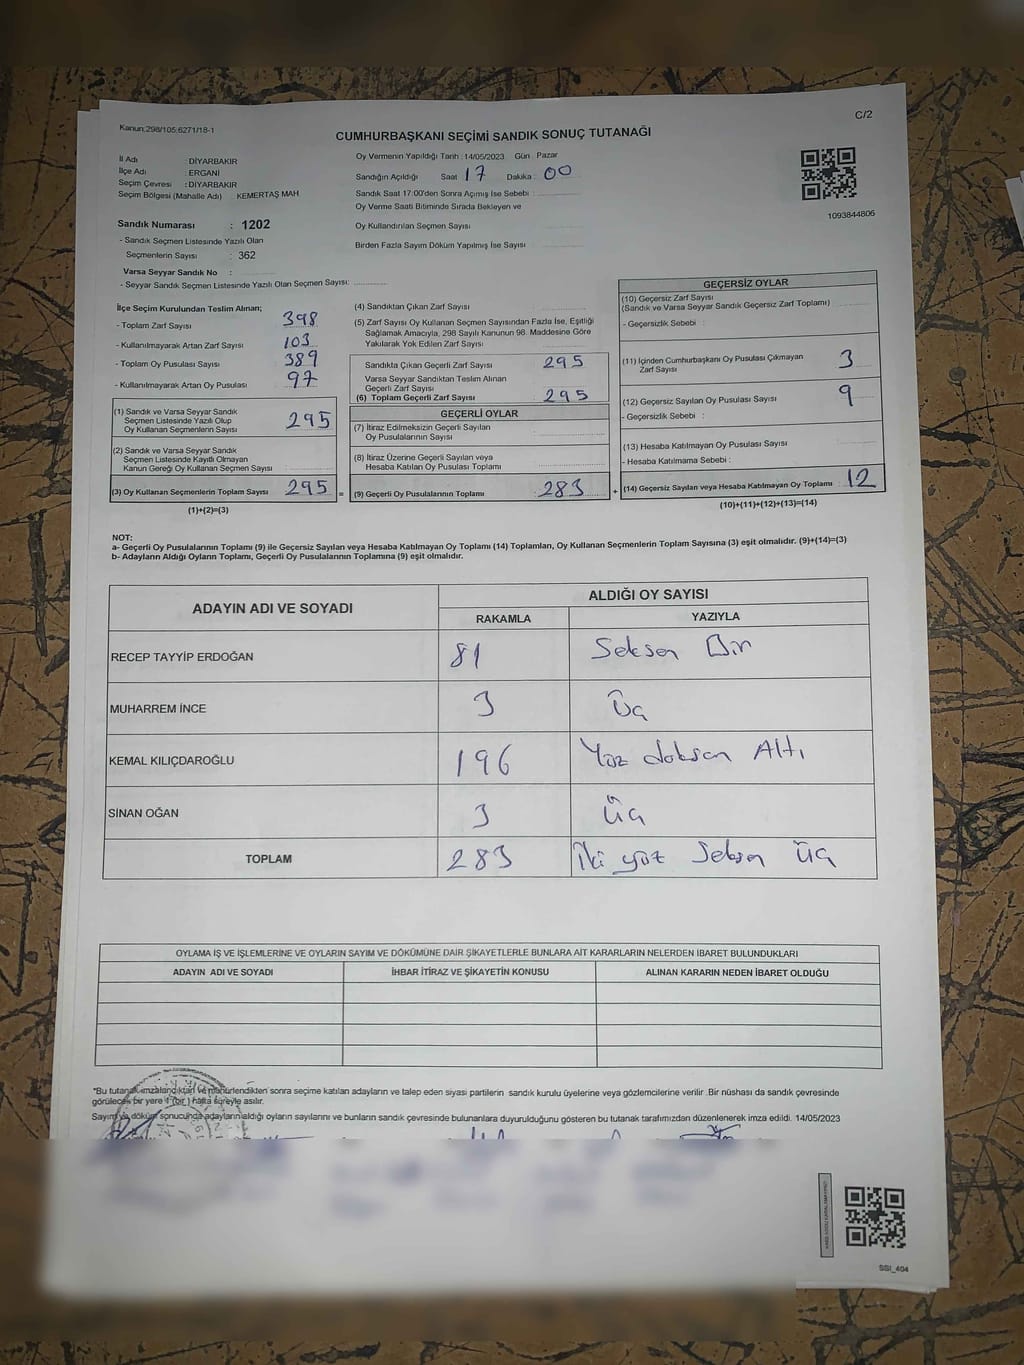 Kanun;298/105;6271/18-1
C/2
CUMHURBAŞKANI SEÇİMİ SANDIK SONUÇ TUTANAĞI
İl Adı : DİYARBAKIR
İlçe Adı : ERGANİ
Seçim Çevresi : DİYARBAKIR
Seçim Bölgesi (Mahalle Adı) KEMERTAŞ MAH
Oy Vermenin Yapıldığı Tarih : 14/05/2023 Gün : Pazar
Sandığın Açıldığı Saat : 17 Dakika : 00
Sandık Saat 17:00'den Sonra Açmış İse Sebebi :
Oy Verme Saati Bitiminde Sırada Bekleyen ve
Oy Kullandırılan Seçmen Sayısı
Birden Fazla Sayım Döküm Yapılmış İse Sayısı
1093844806
Sandık Numarası : 1202
- Sandık Seçmen Listesinde Yazılı Olan
Seçmenlerin Sayısı : 362
Varsa Seyyar Sandık No :
- Seyyar Sandık Seçmen Listesinde Yazılı Olan Seçmen Sayısı:
İlçe Seçim Kurulundan Teslim Alınan;
- Toplam Zarf Sayısı 398
- Kullanılmayarak Artan Zarf Sayısı 103
- Toplam Oy Pusulası Sayısı 389
- Kullanılmayarak Artan Oy Pusulası 97
(1) Sandık ve Varsa Seyyar Sandık
Seçmen Listesinde Yazılı Olup
Oy Kullanan Seçmenlerin Sayısı 295
(2) Sandık ve Varsa Seyyar Sandık
Seçmen Listesinde Kayıtlı Olmayan
Kanun Gereği Oy Kullanan Seçmen Sayısı
(3) Oy Kullanan Seçmenlerin Toplam Sayısı 295 =
(1)+(2)=(3)
(4) Sandıktan Çıkan Zarf Sayısı
(5) Zarf Sayısı Oy Kullanan Seçmen Sayısından Fazla İse, Eşitliği
Sağlamak Amacıyla, 298 Sayılı Kanunun 98. Maddesine Göre
Yakılarak Yok Edilen Zarf Sayısı
Sandıkta Çıkan Geçerli Zarf Sayısı 295
Varsa Seyyar Sandıktan Teslim Alınan
Geçerli Zarf Sayısı
(6) Toplam Geçerli Zarf Sayısı 295
GEÇERLİ OYLAR
(7) İtiraz Edilmeksizin Geçerli Sayılan
Oy Pusulalarının Sayısı
(8) İtiraz Üzerine Geçerli Sayılan veya
Hesaba Katılan Oy Pusulası Toplamı
(9) Geçerli Oy Pusulalarının Toplamı 283 +
GEÇERSİZ OYLAR
(10) Geçersiz Zarf Sayısı
(Sandık ve Varsa Seyyar Sandık Geçersiz Zarf Toplamı)
- Geçersizlik Sebebi :
(11) İçinden Cumhurbaşkanı Oy Pusulası Çıkmayan
Zarf Sayısı 3
(12) Geçersiz Sayılan Oy Pusulası Sayısı 9
- Geçersizlik Sebebi :
(13) Hesaba Katılmayan Oy Pusulası Sayısı
- Hesaba Katılmama Sebebi :
(14) Geçersiz Sayılan veya Hesaba Katılmayan Oy Toplamı : 12
(10)+(11)+(12)+(13)=(14)
NOT:
a- Geçerli Oy Pusulalarının Toplamı (9) ile Geçersiz Sayılan veya Hesaba Katılmayan Oy Toplamı (14) Toplamları, Oy Kullanan Seçmenlerin Toplam Sayısına (3) eşit olmalıdır. (9)+(14)=(3)
b- Adayların Aldığı Oyların Toplamı, Geçerli Oy Pusulalarının Toplamına (9) eşit olmalıdır.
ADAYIN ADI VE SOYADI ALDIĞI OY SAYISI
RAKAMLA YAZIYLA
RECEP TAYYİP ERDOĞAN 81 Seksen Bir
MUHARREM İNCE 3 Üç
KEMAL KILIÇDAROĞLU 196 Yüz doksan Altı
SİNAN OĞAN 3 Üç
TOPLAM 283 İki yüz Seksen üç
OYLAMA İŞ VE İŞLEMLERİNE VE OYLARIN SAYIM VE DÖKÜMÜNE DAİR ŞİKAYETLERLE BUNLARA AİT KARARLARIN NELERDEN İBARET BULUNDUKLARI
ADAYIN ADI VE SOYADI İHBAR İTİRAZ VE ŞİKAYETİN KONUSU ALINAN KARARIN NEDEN İBARET OLDUĞU
"Bu tutanak imzalandıktan ve mühürlendikten sonra seçime katılan adayların ve talep eden siyasi partilerin sandık kurulu üyelerine veya gözlemcilerine verilir. Bir nüshası da sandık çevresinde
görülecek bir yere 1 (bir) hafta süreyle asılır.
Sayım ve döküm sonucunda adayların aldığı oyların sayılarını ve bunların sandık çevresinde bulunanlara duyurulduğunu gösteren bu tutanak tarafımızdan düzenlenerek imza edildi. 14/05/2023
SSI_404